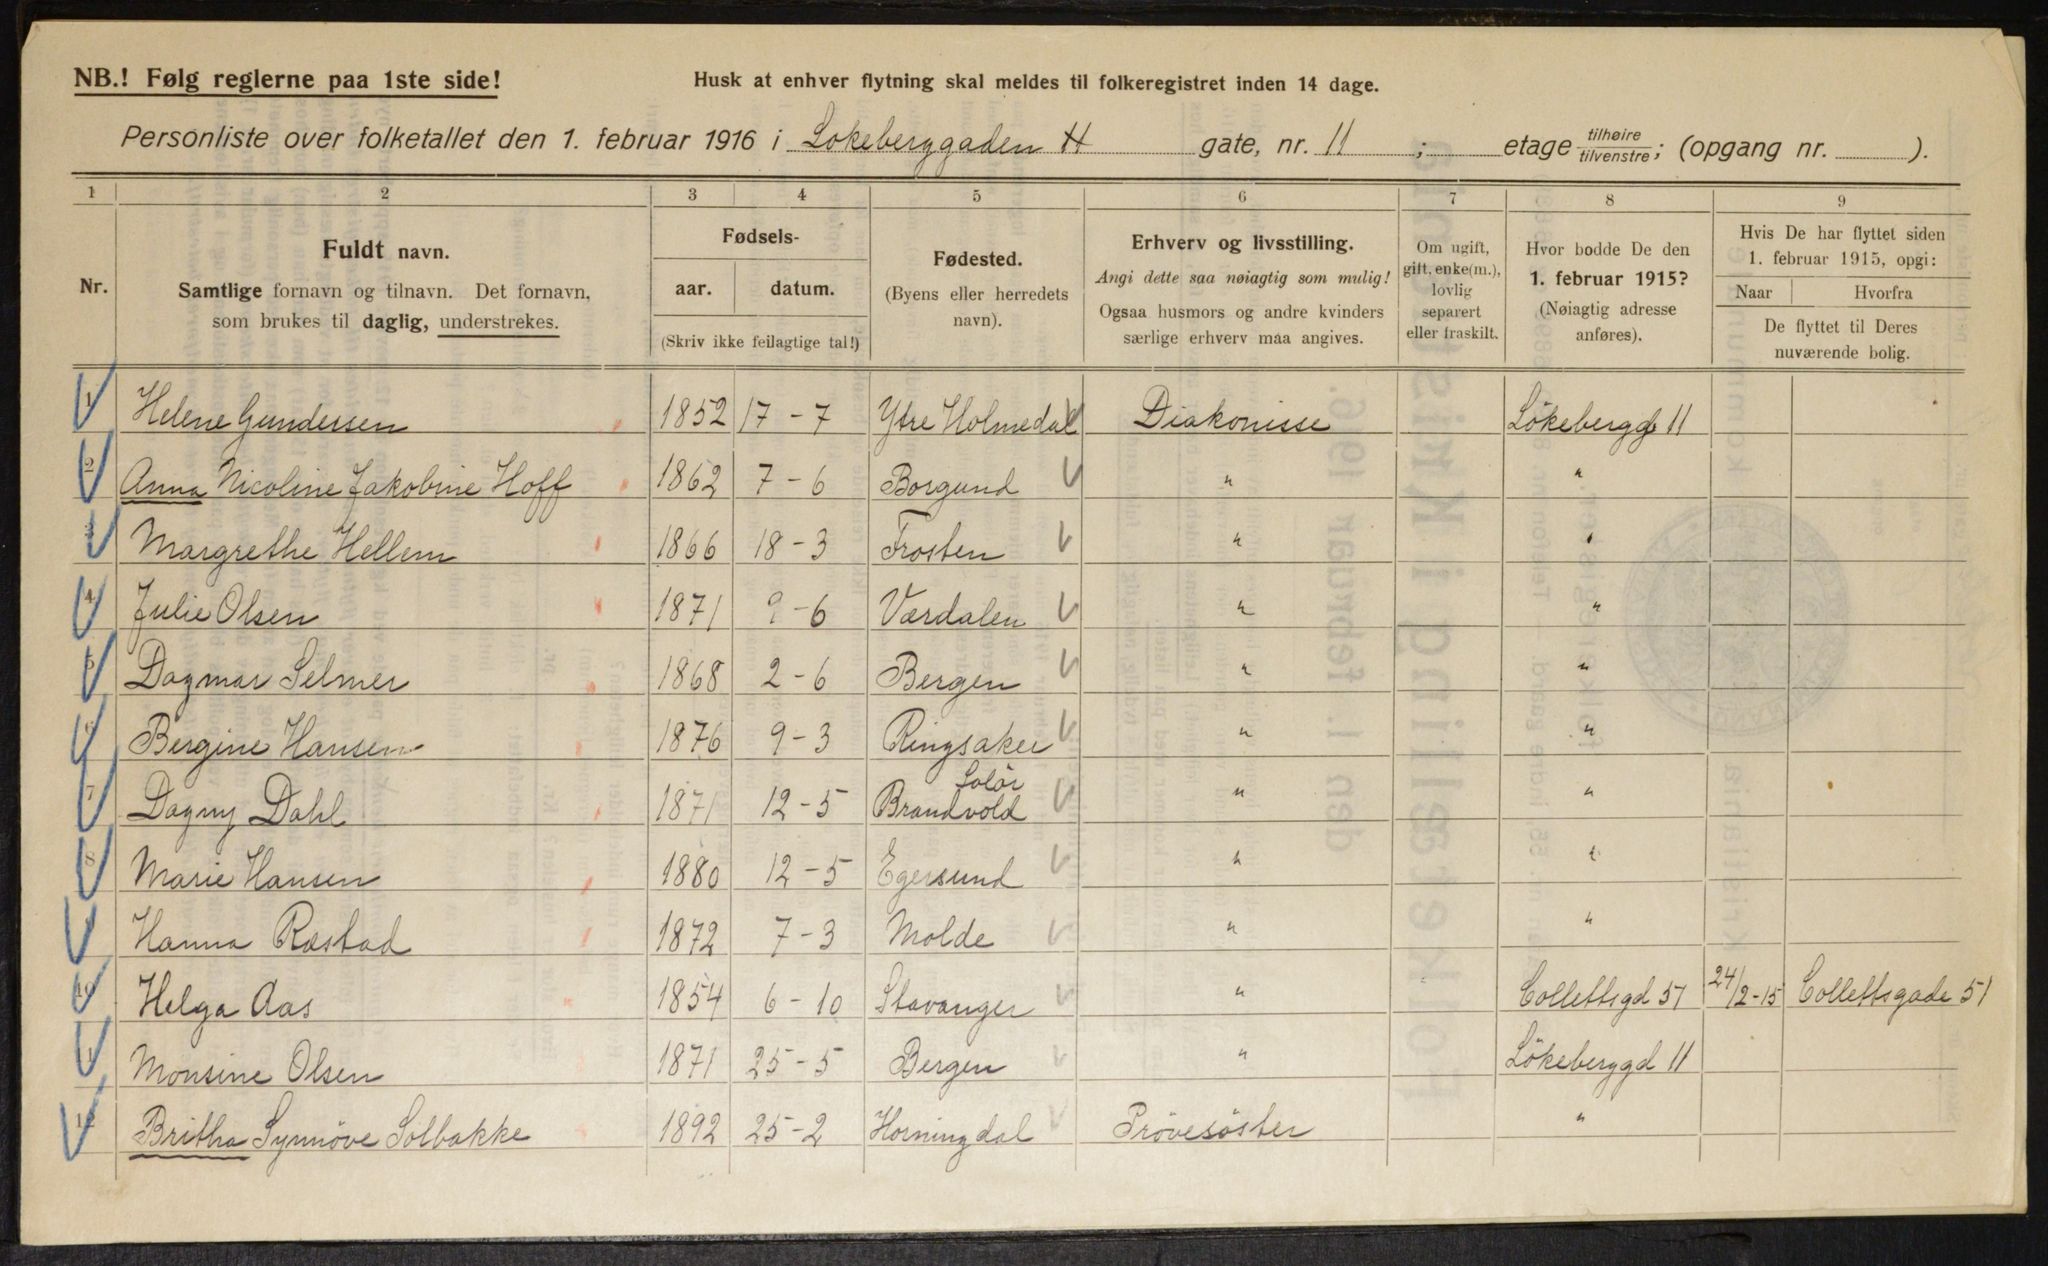 NB.! Følg reglerne paa 1ste side!
Husk at enhver flytning skal meldes til folkeregistret inden 14 dage.
Personliste over folketallet den 1. februar 1916 i Lökeberggaden 11 gate, nr. 11 ; etage tilhøire/tilvenstre; (opgang nr. ).
1 2 3 4 5 6 7 8 9
Nr.
Fuldt navn.
Samtlige fornavn og tilnavn. Det fornavn,
som brukes til daglig, understrekes.
Fødsels-
aar. datum.
(Skriv ikke feilagtige tal!)
Fødested.
(Byens eller herredets
navn).
Erhverv og livsstilling.
Angi dette saa nøiagtig som mulig!
Ogsaa husmors og andre kvinders
særlige erhverv maa angives.
Om ugift,
gift, enke(m.),
lovlig
separert
eller fraskilt.
Hvor bodde De den
1. februar 1915?
(Nøiagtig adresse
anføres).
Hvis De har flyttet siden
1. februar 1915, opgi:
Naar Hvorfra
De flyttet til Deres
nuværende bolig.
1 Helene Gundersen 1852 17-7 Ytre Holmedal Diakonisse Lökeberggd 11
2 Anna Nicoline Jakobine Hoff 1862 7-6 Borgund " "
3 Margrethe Hellem 1866 18-3 Frosten " "
4 Julie Olsen 1871 9-6 Værdalen " "
5 Dagmar Selmer 1868 2-6 Bergen " "
6 Bergine Hansen 1876 9-3 Ringsaker " "
Solör
7 Dagny Dahl 1871 12-5 Brandvold " "
8 Marie Hansen 1880 12-5 Egersund " "
9 Hanna Røstad 1872 7-3 Molde " "
10 Helga Aas 1854 6-10 Stavanger " Collettsgd 51 24/2-15 Collettsgade 51
11 Monsine Olsen 1871 25-5 Bergen " Lökeberggd 11
12 Britha Synnöve Solbakke 1892 25-2 Horningdal Prövesöster "